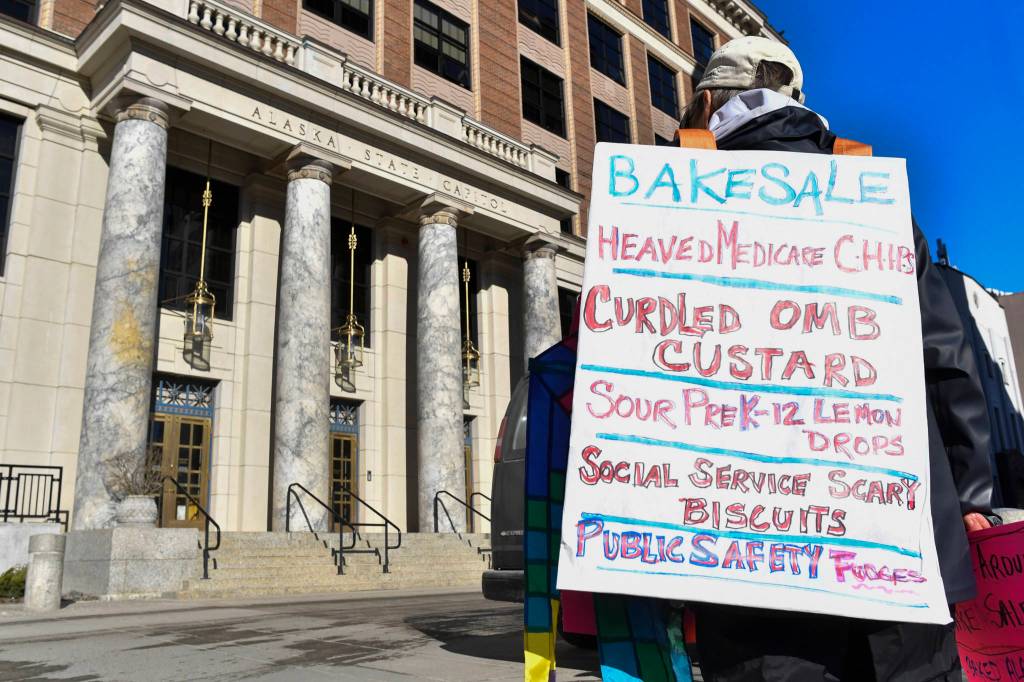 ALASKA STATE CAPITOL
BAKESALE
HEAVED MEDICARE C·H·I·PS
CURDLED OMB
CUSTARD
SOUR PREK-12 LEMON
DROPS
SOCIAL SERVICE SCARY
BISCUITS
PUBLIC SAFETY FUDGES